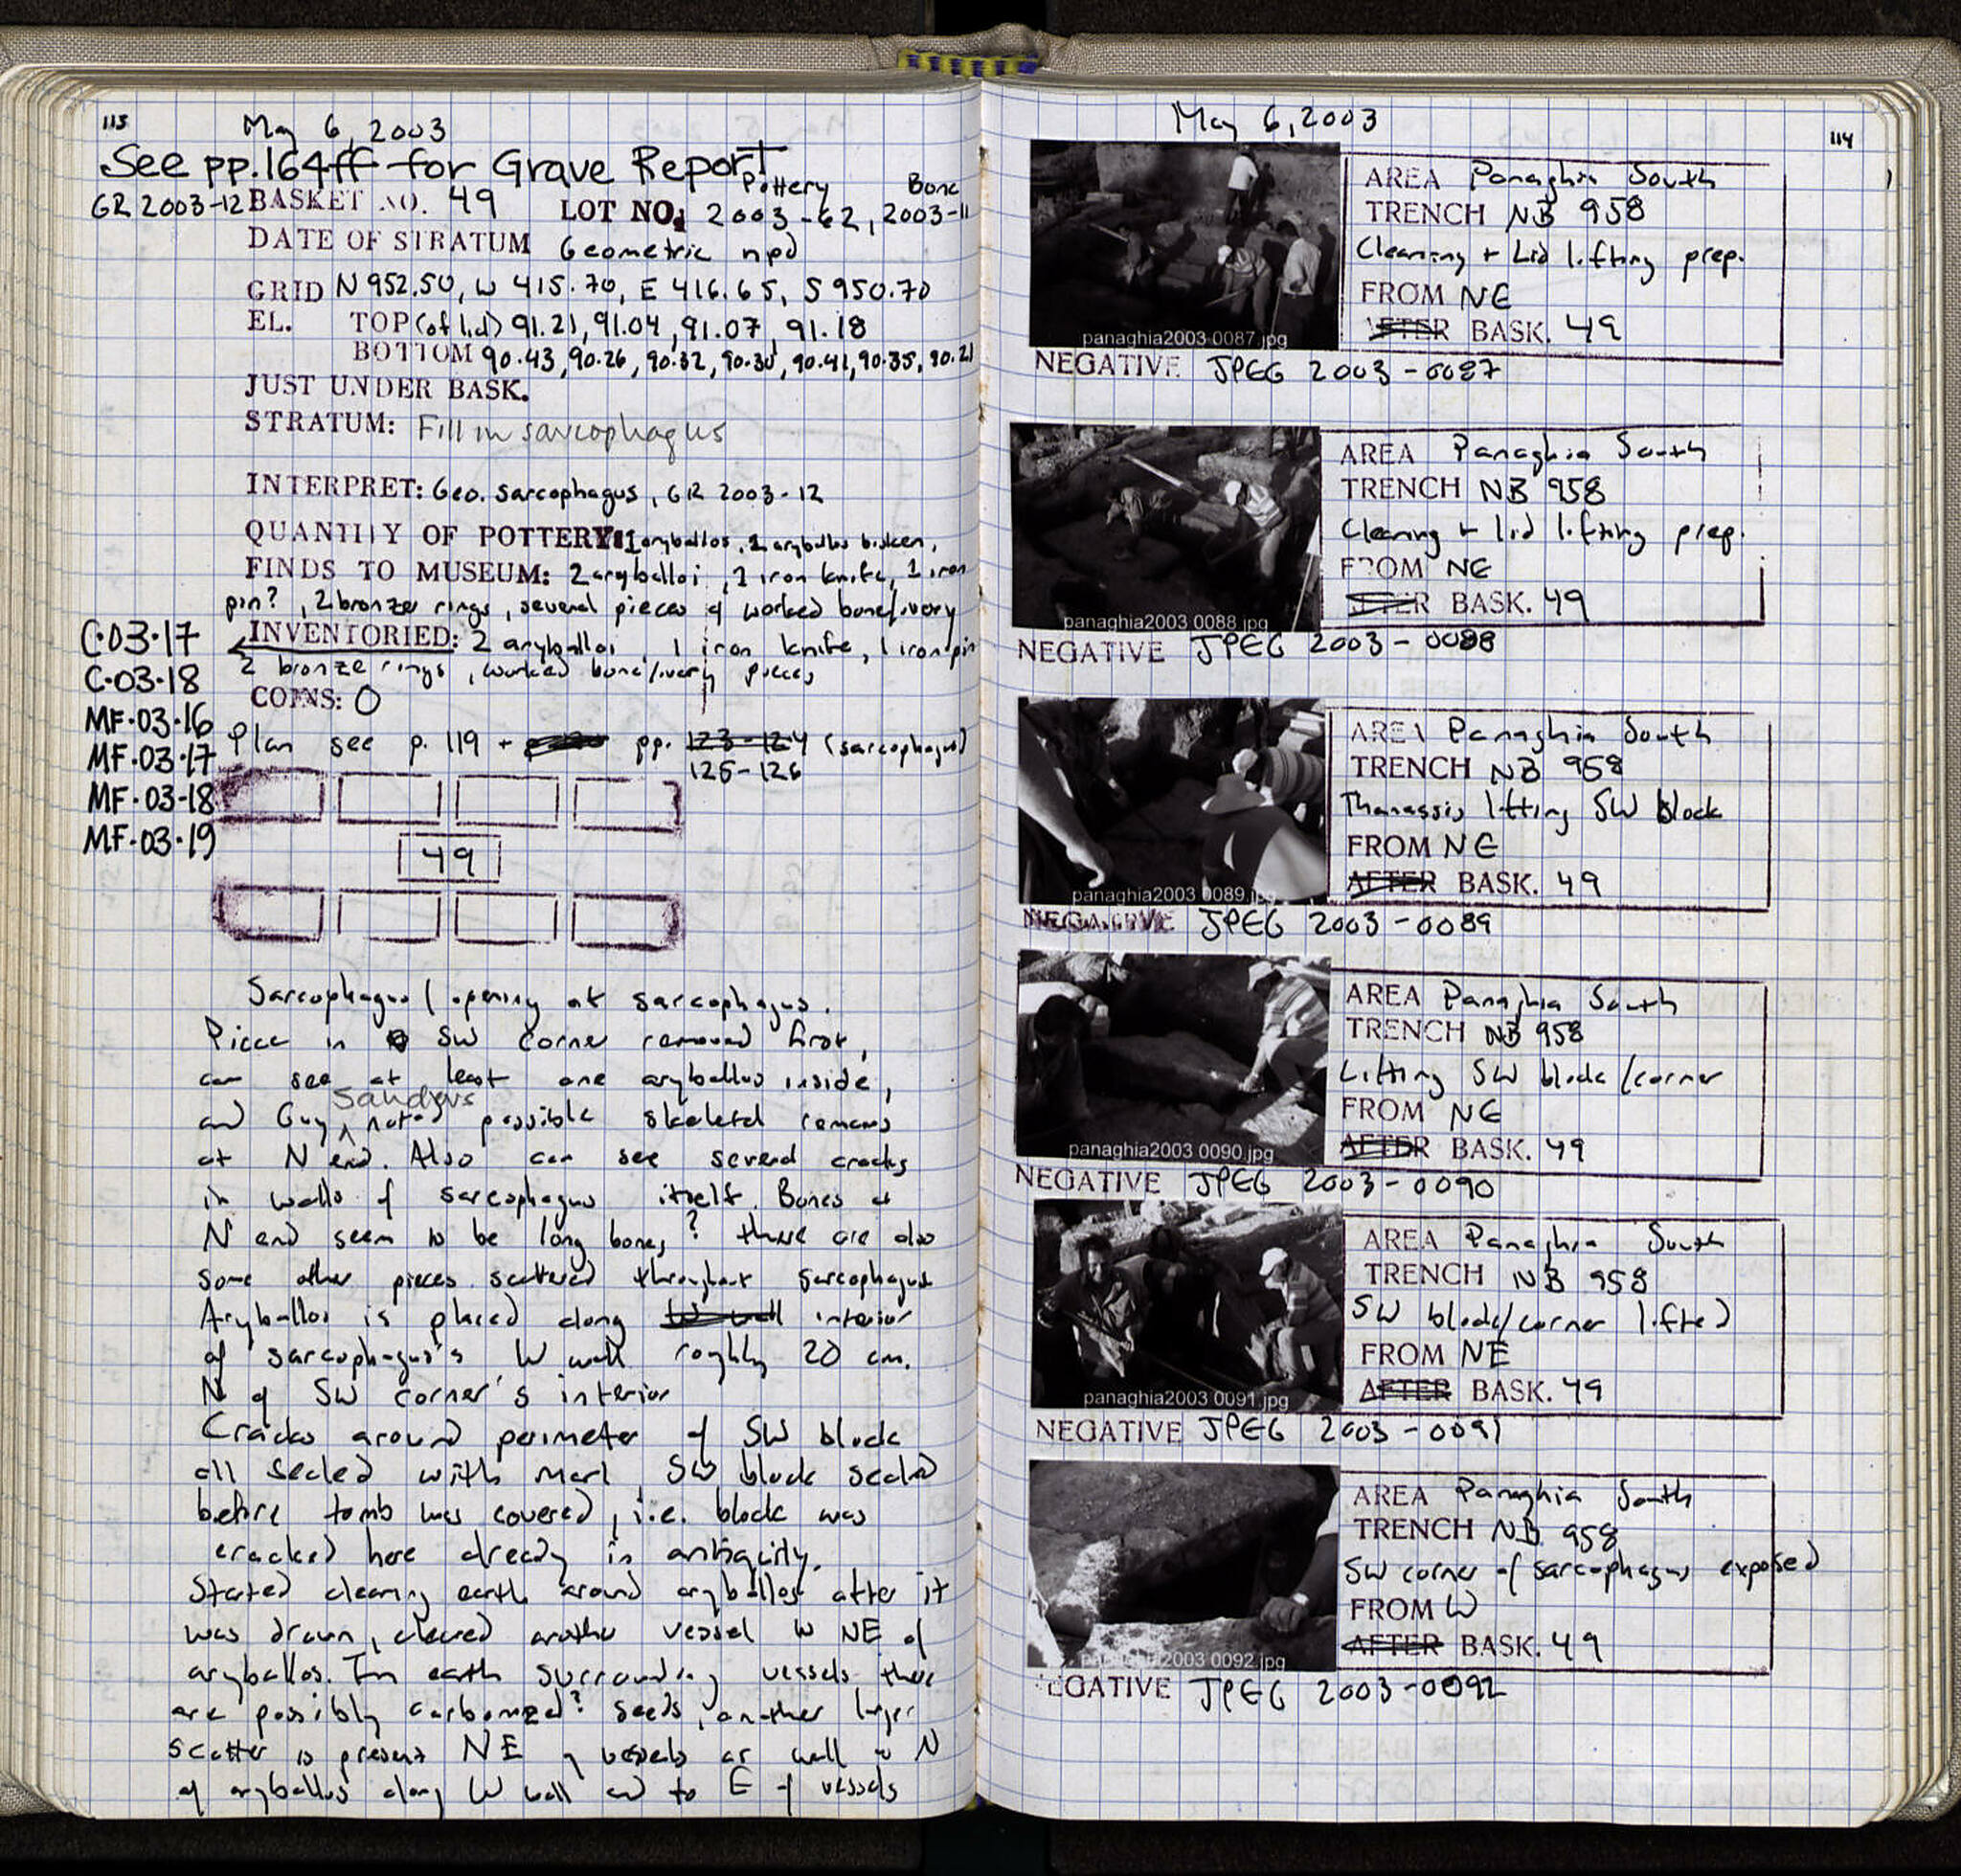 113
May 6, 2003
See pp.164ff for Grave Report
Pottery Bone
GR 2003-12 BASKET NO. 49 LOT NO: 2003-62, 2003-11
DATE OF STRATUM Geometric npd
GRID N 952.50, W 415.70, E 416.65, S 950.70
EL. TOP (of lid) 91.21, 91.04, 91.07, 91.18
BOTTOM 90.43, 90.26, 90.32, 90.30, 90.41, 90.35, 90.21
JUST UNDER BASK.
STRATUM: Fill in sarcophagus
INTERPRET: Geo. sarcophagus, GR 2003-12
QUANTITY OF POTTERY: 1 aryballos, 1 aryballos broken,
FINDS TO MUSEUM: 2 aryballoi, 1 iron knife, 1 iron
pin?, 2 bronze rings, several pieces of worked bone/ivory
INVENTORIED: 2 aryballoi 1 iron knife, 1 iron pin
2 bronze rings, worked bone/ivory pieces
C·03·17
C·03·18
MF·03·16
MF·03·17
MF·03·18
MF·03·19
COINS: 0
Plan see p. 119 + pp. 123-124 (sarcophagus)
125-126
49
Sarcophagus / opening of sarcophagus.
Piece in SW corner removed first,
can see at least one aryballos inside,
and Guy Sanders notes possible skeletal remains
at N end. Also can see several cracks
in walls of sarcophagus itself. Bones at
N end seem to be long bones? there are also
some other pieces scattered throughout sarcophagus
Aryballos is placed along W wall interior
of sarcophagus's W wall roughly 20 cm.
N of SW corner's interior
Cracks around perimeter of SW block
all sealed with marl SW block sealed
before tomb was covered, i.e. block was
cracked here already in antiquity.
Started cleaning earth around aryballos after it
was drawn, cleared another vessel to NE of
aryballos. In earth surrounding vessels there
are possibly carbonized? seeds, another larger
scatter is present NE of vessels as well as N
of aryballos along W wall and to E of vessels
May 6, 2003
114
AREA Panaghia South
TRENCH NB 958
Cleaning + Lid lifting prep.
FROM NE
AFTER BASK. 49
panaghia2003 0087.jpg
NEGATIVE JPEG 2003-0087
AREA Panaghia South
TRENCH NB 958
Cleaning + lid lifting prep.
FROM NE
AFTER BASK. 49
panaghia2003 0088.jpg
NEGATIVE JPEG 2003-0088
AREA Panaghia South
TRENCH NB 958
Thanassis lifting SW block
FROM NE
AFTER BASK. 49
panaghia2003 0089.jpg
NEGATIVE JPEG 2003-0089
AREA Panaghia South
TRENCH NB 958
Lifting SW block/corner
FROM NE
AFTER BASK. 49
panaghia2003 0090.jpg
NEGATIVE JPEG 2003-0090
AREA Panaghia South
TRENCH NB 958
SW block/corner lifted
FROM NE
AFTER BASK. 49
panaghia2003 0091.jpg
NEGATIVE JPEG 2003-0091
AREA Panaghia South
TRENCH NB 958
SW corner of sarcophagus exposed
FROM W
AFTER BASK. 49
panaghia2003 0092.jpg
NEGATIVE JPEG 2003-0092